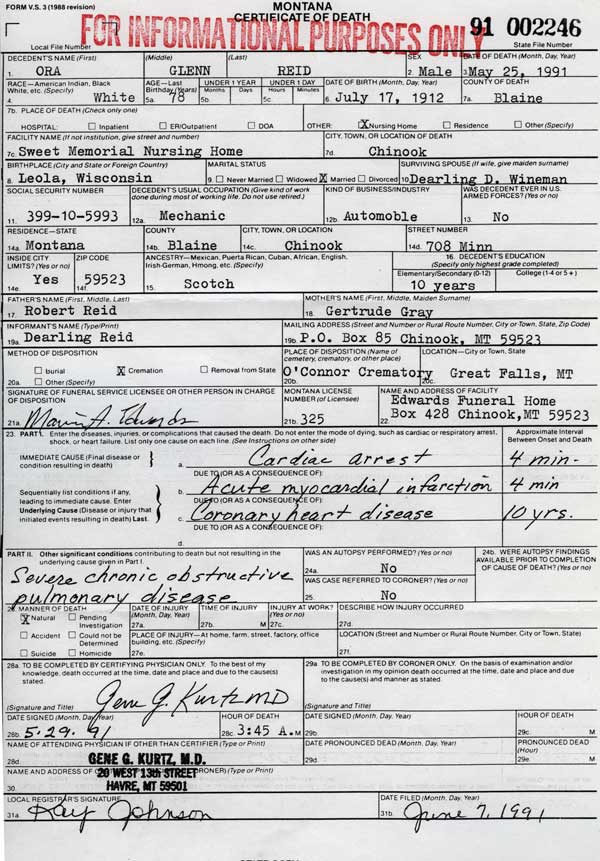 FORM V.S. 3 (1988 revision)
MONTANA
CERTIFICATE OF DEATH
FOR INFORMATIONAL PURPOSES ONLY
91 002246
Local File Number
State File Number
DECEDENT'S NAME (First) (Middle) (Last) SEX DATE OF DEATH (Month, Day, Year)
1. ORA GLENN REID 2. Male 3 May 25, 1991
RACE—American Indian, Black White, etc. (Specify)
4. White
AGE—Last Birthday (Years)
5a. 78
UNDER 1 YEAR
Months Days
5b
UNDER 1 DAY
Hours Minutes
5c
DATE OF BIRTH (Month, Day, Year)
6. July 17, 1912
COUNTY OF DEATH
7a. Blaine
7b. PLACE OF DEATH (Check only one)
HOSPITAL: Inpatient ER/Outpatient DOA OTHER: X Nursing Home Residence Other (Specify)
FACILITY NAME (If not institution, give street and number)
7c Sweet Memorial Nursing Home
CITY, TOWN, OR LOCATION OF DEATH
7d. Chinook
BIRTHPLACE (City and State or Foreign Country)
8. Leola, Wisconsin
MARITAL STATUS
9. Never Married Widowed X Married Divorced
SURVIVING SPOUSE (If wife, give maiden surname)
10 Dearling D. Wineman
SOCIAL SECURITY NUMBER
11. 399-10-5993
DECEDENT'S USUAL OCCUPATION (Give kind of work done during most of working life. Do not use retired.)
12a. Mechanic
KIND OF BUSINESS/INDUSTRY
12b. Automoble
WAS DECEDENT EVER IN U.S. ARMED FORCES? (Yes or no)
13. No
RESIDENCE—STATE
14a. Montana
COUNTY
14b. Blaine
CITY, TOWN, OR LOCATION
14c. Chinook
STREET NUMBER
14d. 708 Minn
INSIDE CITY LIMITS? (Yes or no)
14e. Yes
ZIP CODE
14f. 59523
ANCESTRY—Mexican, Puerta Rican, Cuban, African, English, Irish-German, Hmong, etc. (Specify)
15. Scotch
16. DECEDENT'S EDUCATION
(Specify only highest grade completed)
Elementary/Secondary (0-12) College (1-4 or 5+)
10 years
FATHER'S NAME (First, Middle, Last)
17. Robert Reid
MOTHER'S NAME (First, Middle, Maiden Surname)
18. Gertrude Gray
INFORMANT'S NAME (Type/Print)
19a. Dearling Reid
MAILING ADDRESS (Street and Number or Rural Route Number, City or Town, State, Zip Code)
19b. P.O. Box 85 Chinook, MT 59523
METHOD OF DISPOSITION
burial X Cremation Removal from State
20a. Other (Specify)
PLACE OF DISPOSITION (Name of cemetery, crematory, or other place)
O'Connor Crematory
20b.
LOCATION—City or Town, State
20c. Great Falls, MT
SIGNATURE OF FUNERAL SERVICE LICENSEE OR OTHER PERSON IN CHARGE OF DISPOSITION
21a. Marvin A. Edwards
MONTANA LICENSE NUMBER (of Licensee)
21b. 325
NAME AND ADDRESS OF FACILITY
Edwards Funeral Home
22. Box 428 Chinook, MT 59523
23. PART I. Enter the diseases, injuries, or complications that caused the death. Do not enter the mode of dying, such as cardiac or respiratory arrest, shock, or heart failure. List only one cause on each line. (See Instructions on other side)
Approximate Interval Between Onset and Death
IMMEDIATE CAUSE (Final disease or condition resulting in death)
a. Cardiac arrest 4 min-
DUE TO (OR AS A CONSEQUENCE OF):
Sequentially list conditions if any, leading to immediate cause. Enter Underlying Cause (Disease or injury that initiated events resulting in death) Last.
b. Acute myocardial infarction 4 min
DUE TO (OR AS A CONSEQUENCE OF):
c. Coronary heart disease 10 yrs.
DUE TO (OR AS A CONSEQUENCE OF):
d.
PART II. Other significant conditions contributing to death but not resulting in the underlying cause given in Part I.
Severe chronic obstructive
pulmonary disease
WAS AN AUTOPSY PERFORMED? (Yes or no)
24a. No
WAS CASE REFERRED TO CORONER? (Yes or no)
25. No
24b. WERE AUTOPSY FINDINGS AVAILABLE PRIOR TO COMPLETION OF CAUSE OF DEATH? (Yes or no)
26. MANNER OF DEATH
X Natural Pending Investigation
Accident Could not be Determined
Suicide Homicide
DATE OF INJURY (Month, Day, Year)
27a.
TIME OF INJURY
27b. M
INJURY AT WORK? (Yes or no)
27c.
DESCRIBE HOW INJURY OCCURRED
27d.
PLACE OF INJURY—At home, farm, street, factory, office building, etc. (Specify)
27e.
LOCATION (Street and Number or Rural Route Number, City or Town, State)
27f.
28a. TO BE COMPLETED BY CERTIFYING PHYSICIAN ONLY. To the best of my knowledge, death occurred at the time, date and place and due to the cause(s) stated.
(Signature and Title) Gene G. Kurtz MD
29a TO BE COMPLETED BY CORONER ONLY. On the basis of examination and/or investigation in my opinion death occurred at the time, date and place and due to the cause(s) and manner as stated.
(Signature and Title)
DATE SIGNED (Month, Day, Year)
28b. 5-29-91
HOUR OF DEATH
28c 3:45 A.M
DATE SIGNED (Month, Day, Year)
29b.
HOUR OF DEATH
29c M
NAME OF ATTENDING PHYSICIAN IF OTHER THAN CERTIFIER (Type or Print)
28d.
DATE PRONOUNCED DEAD (Month, Day, Year)
29d.
PRONOUNCED DEAD (Hour)
29e. M
GENE G. KURTZ, M.D.
NAME AND ADDRESS OF CORONER) (Type or Print)
20 WEST 13th STREET
30. HAVRE, MT 59501
LOCAL REGISTRAR'S SIGNATURE
31a. Kay Johnson
DATE FILED (Month, Day, Year)
31b. June 7, 1991